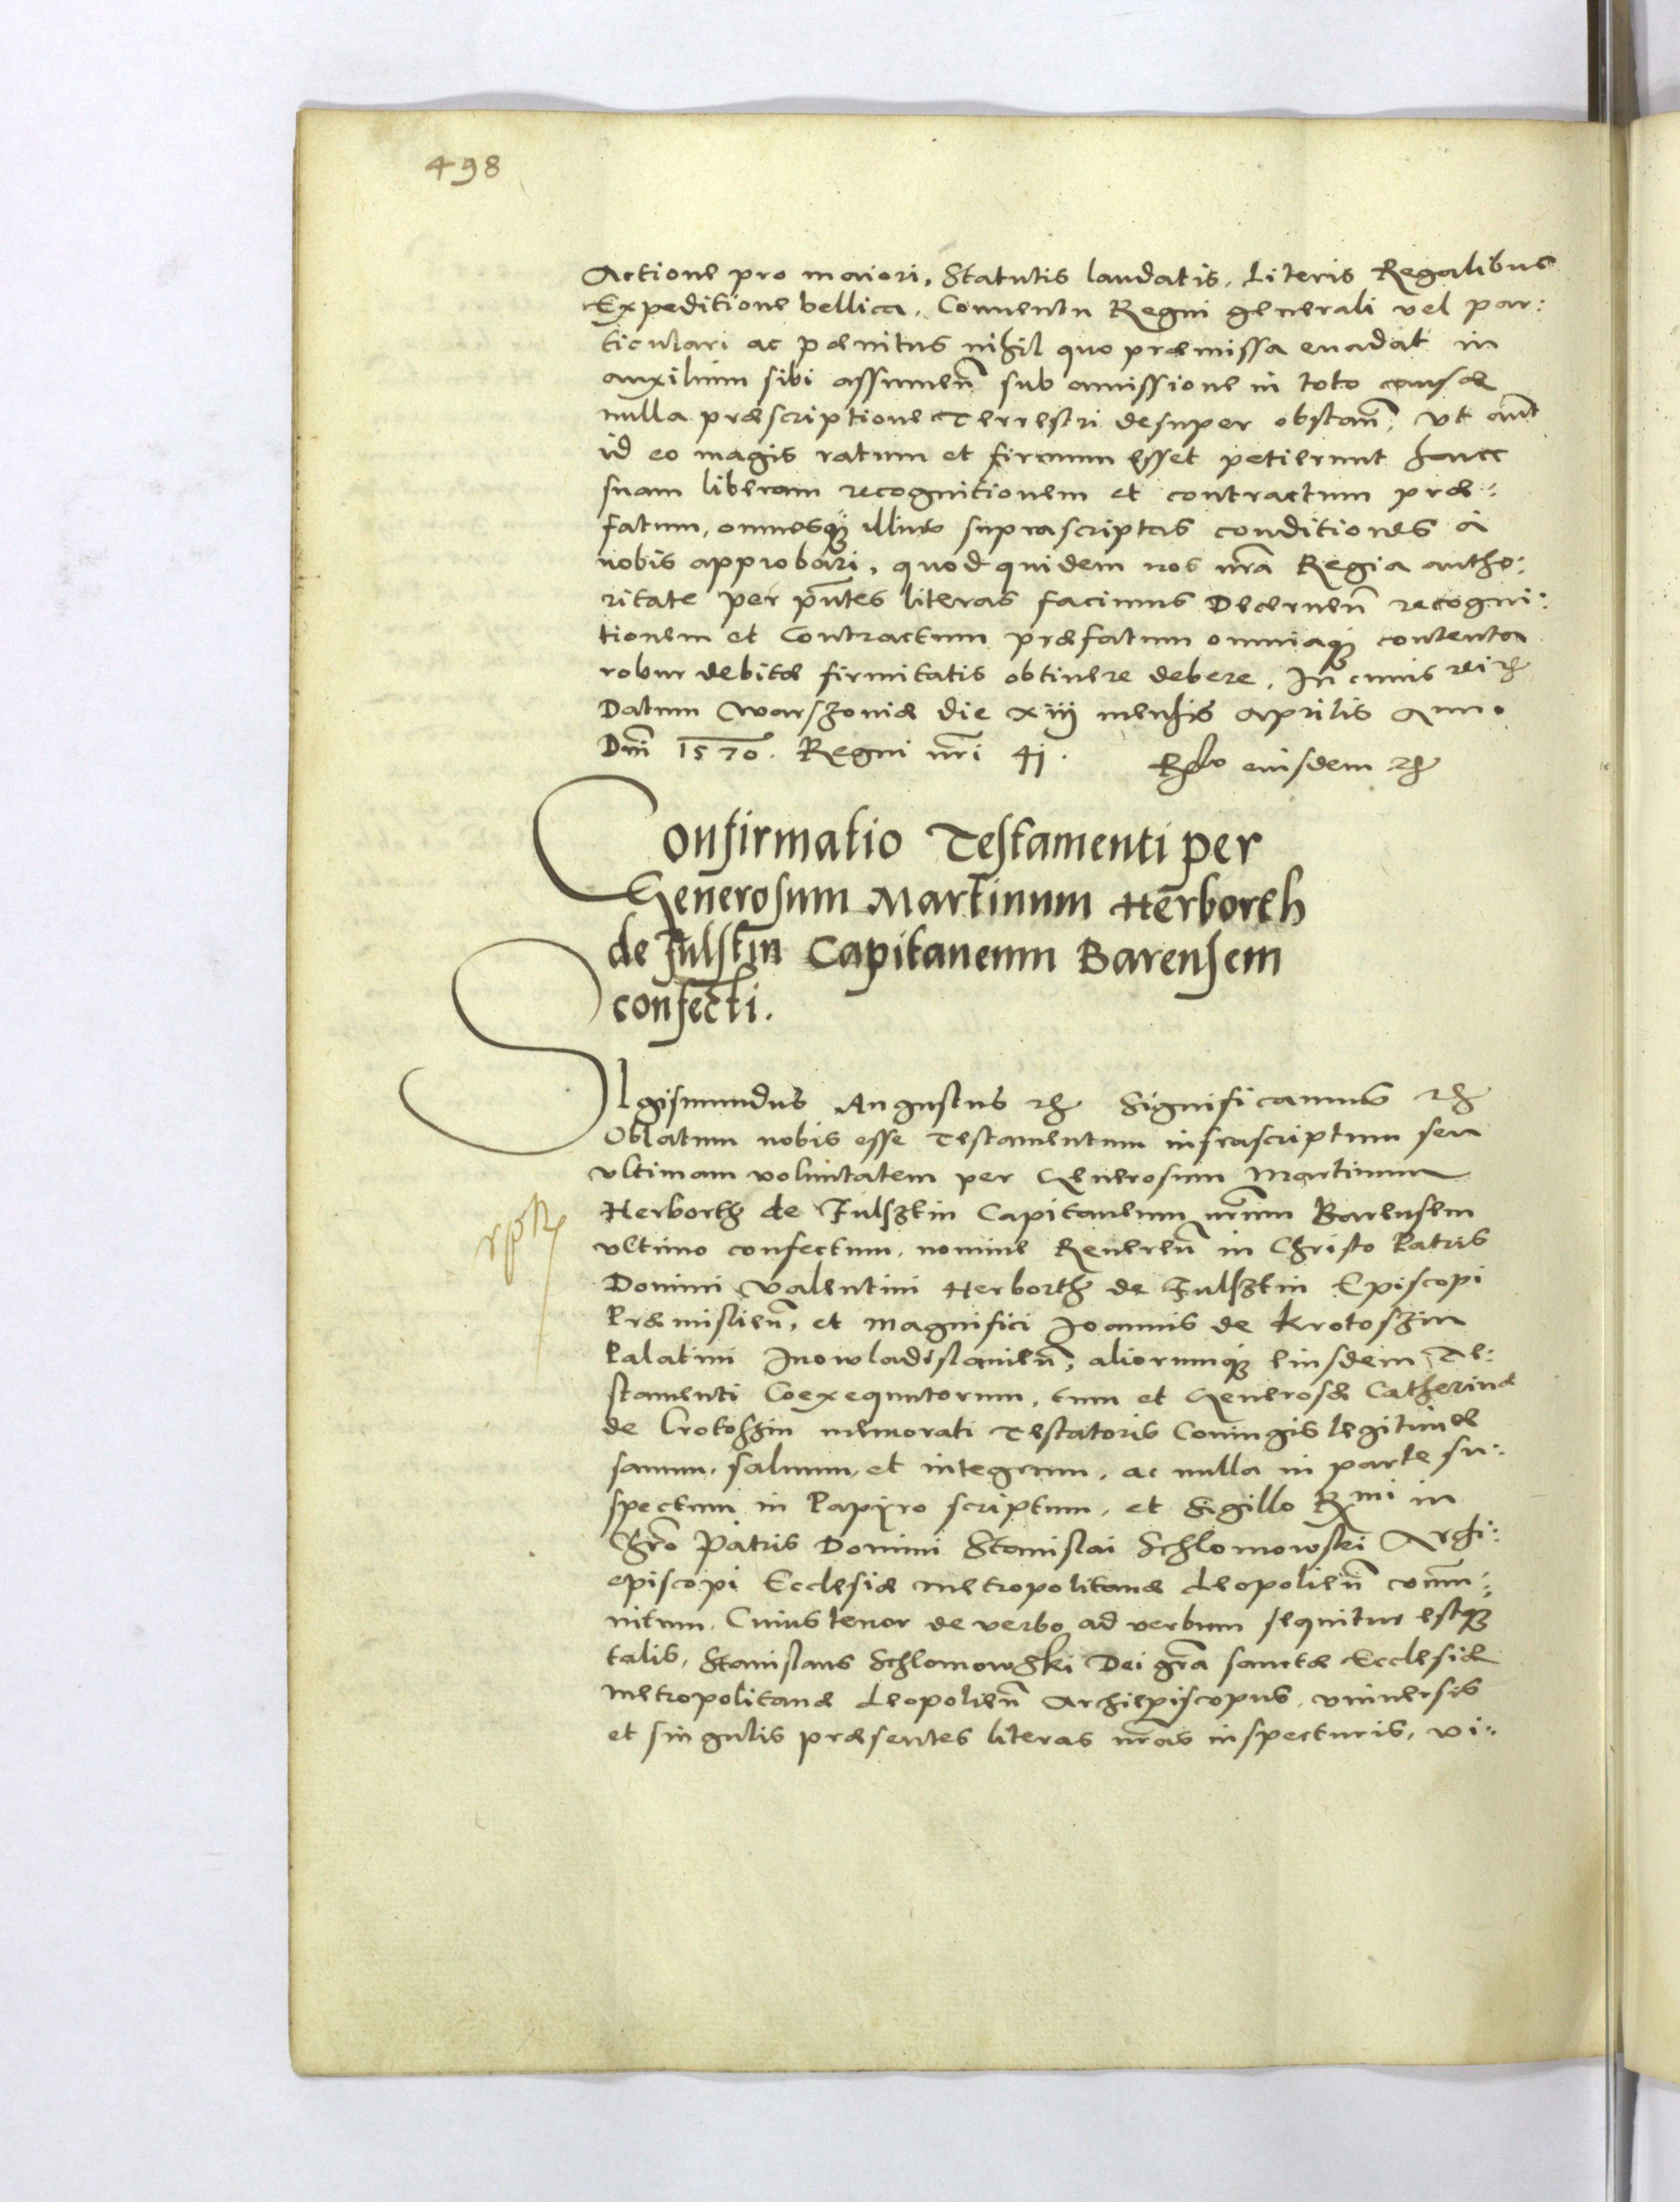 498
Actione pro maiori, Statutis laudatis, Literis Regalibus
Expeditione bellica, Conuentu Regni generali vel par:
ticulari ac pænitus nihil quo præmissa euadat in
auxilium sibi assumeñ sub amissione in toto causæ
nulla præscriptione Terrestri desuper obstañ, Vt aũt
id eo magis ratum et firmum esset petierunt hancc
suam liberam recognitionem et contractum præ:
fatum, omnesq̃ illius suprascriptas conditiones à
nobis approbari, quod quidem nos nr̃a Regia autho:
ritate per pñtes literas facimus Decerneñ recogni:
tionem et Contractum præfatum omniaq̃ contenta
robur debitæ firmitatis obtinere debere. In cuius rei etc
Datum Warszouiæ die xiij mensis Aprilis Anno
Dñi 1570. Regni nr̃i 41. Rlo eiusdem etc
Confirmatio Testamenti per
Generosum Martinum Herborth
de Fulstin Capitaneum Barensem
confecti.
SIgismundus Augustus etc Significamus etc
Oblatum nobis esse Testamentum infrascriptum seu
vltimam voluntatem per Generosum Martinum
Herborth de Fulsztin Capitaneum nr̃um Barensem
vltimo confectum, nomine Reuereñ in Christo Patris
Domini Valentini Herborth de Fulsztin Episcopi
Præmislieñ, et Magnifici Joannis de Krotoszin
Palatini Jnowladislauieñ, aliorumq̃ eiusdem Te:
stamenti Coexequutorum, tum et Generosæ Catherinæ
de Crotoszin memorati Testatoris Coniugis legitimæ
sanum, saluum, et integrum, ac nulla in parte su:
spectum in Papyro scriptum, et Sigillo Rmi in
Chr̃o Patris Domini Stanislai Schlomowski Archi:
episcopi Ecclesiæ Metropolitanæ Leopolieñ com̃u:
nitum. Cuius tenor de verbo ad verbum sequitur estq̃
talis, Stanislaus Schlomowski Dei gr̃a sanctæ Ecclesiæ
Metropolitanæ Leopolieñ Archiepiscopus, vniuersis
et singulis præsentes literas nr̃as inspecturis, vi: